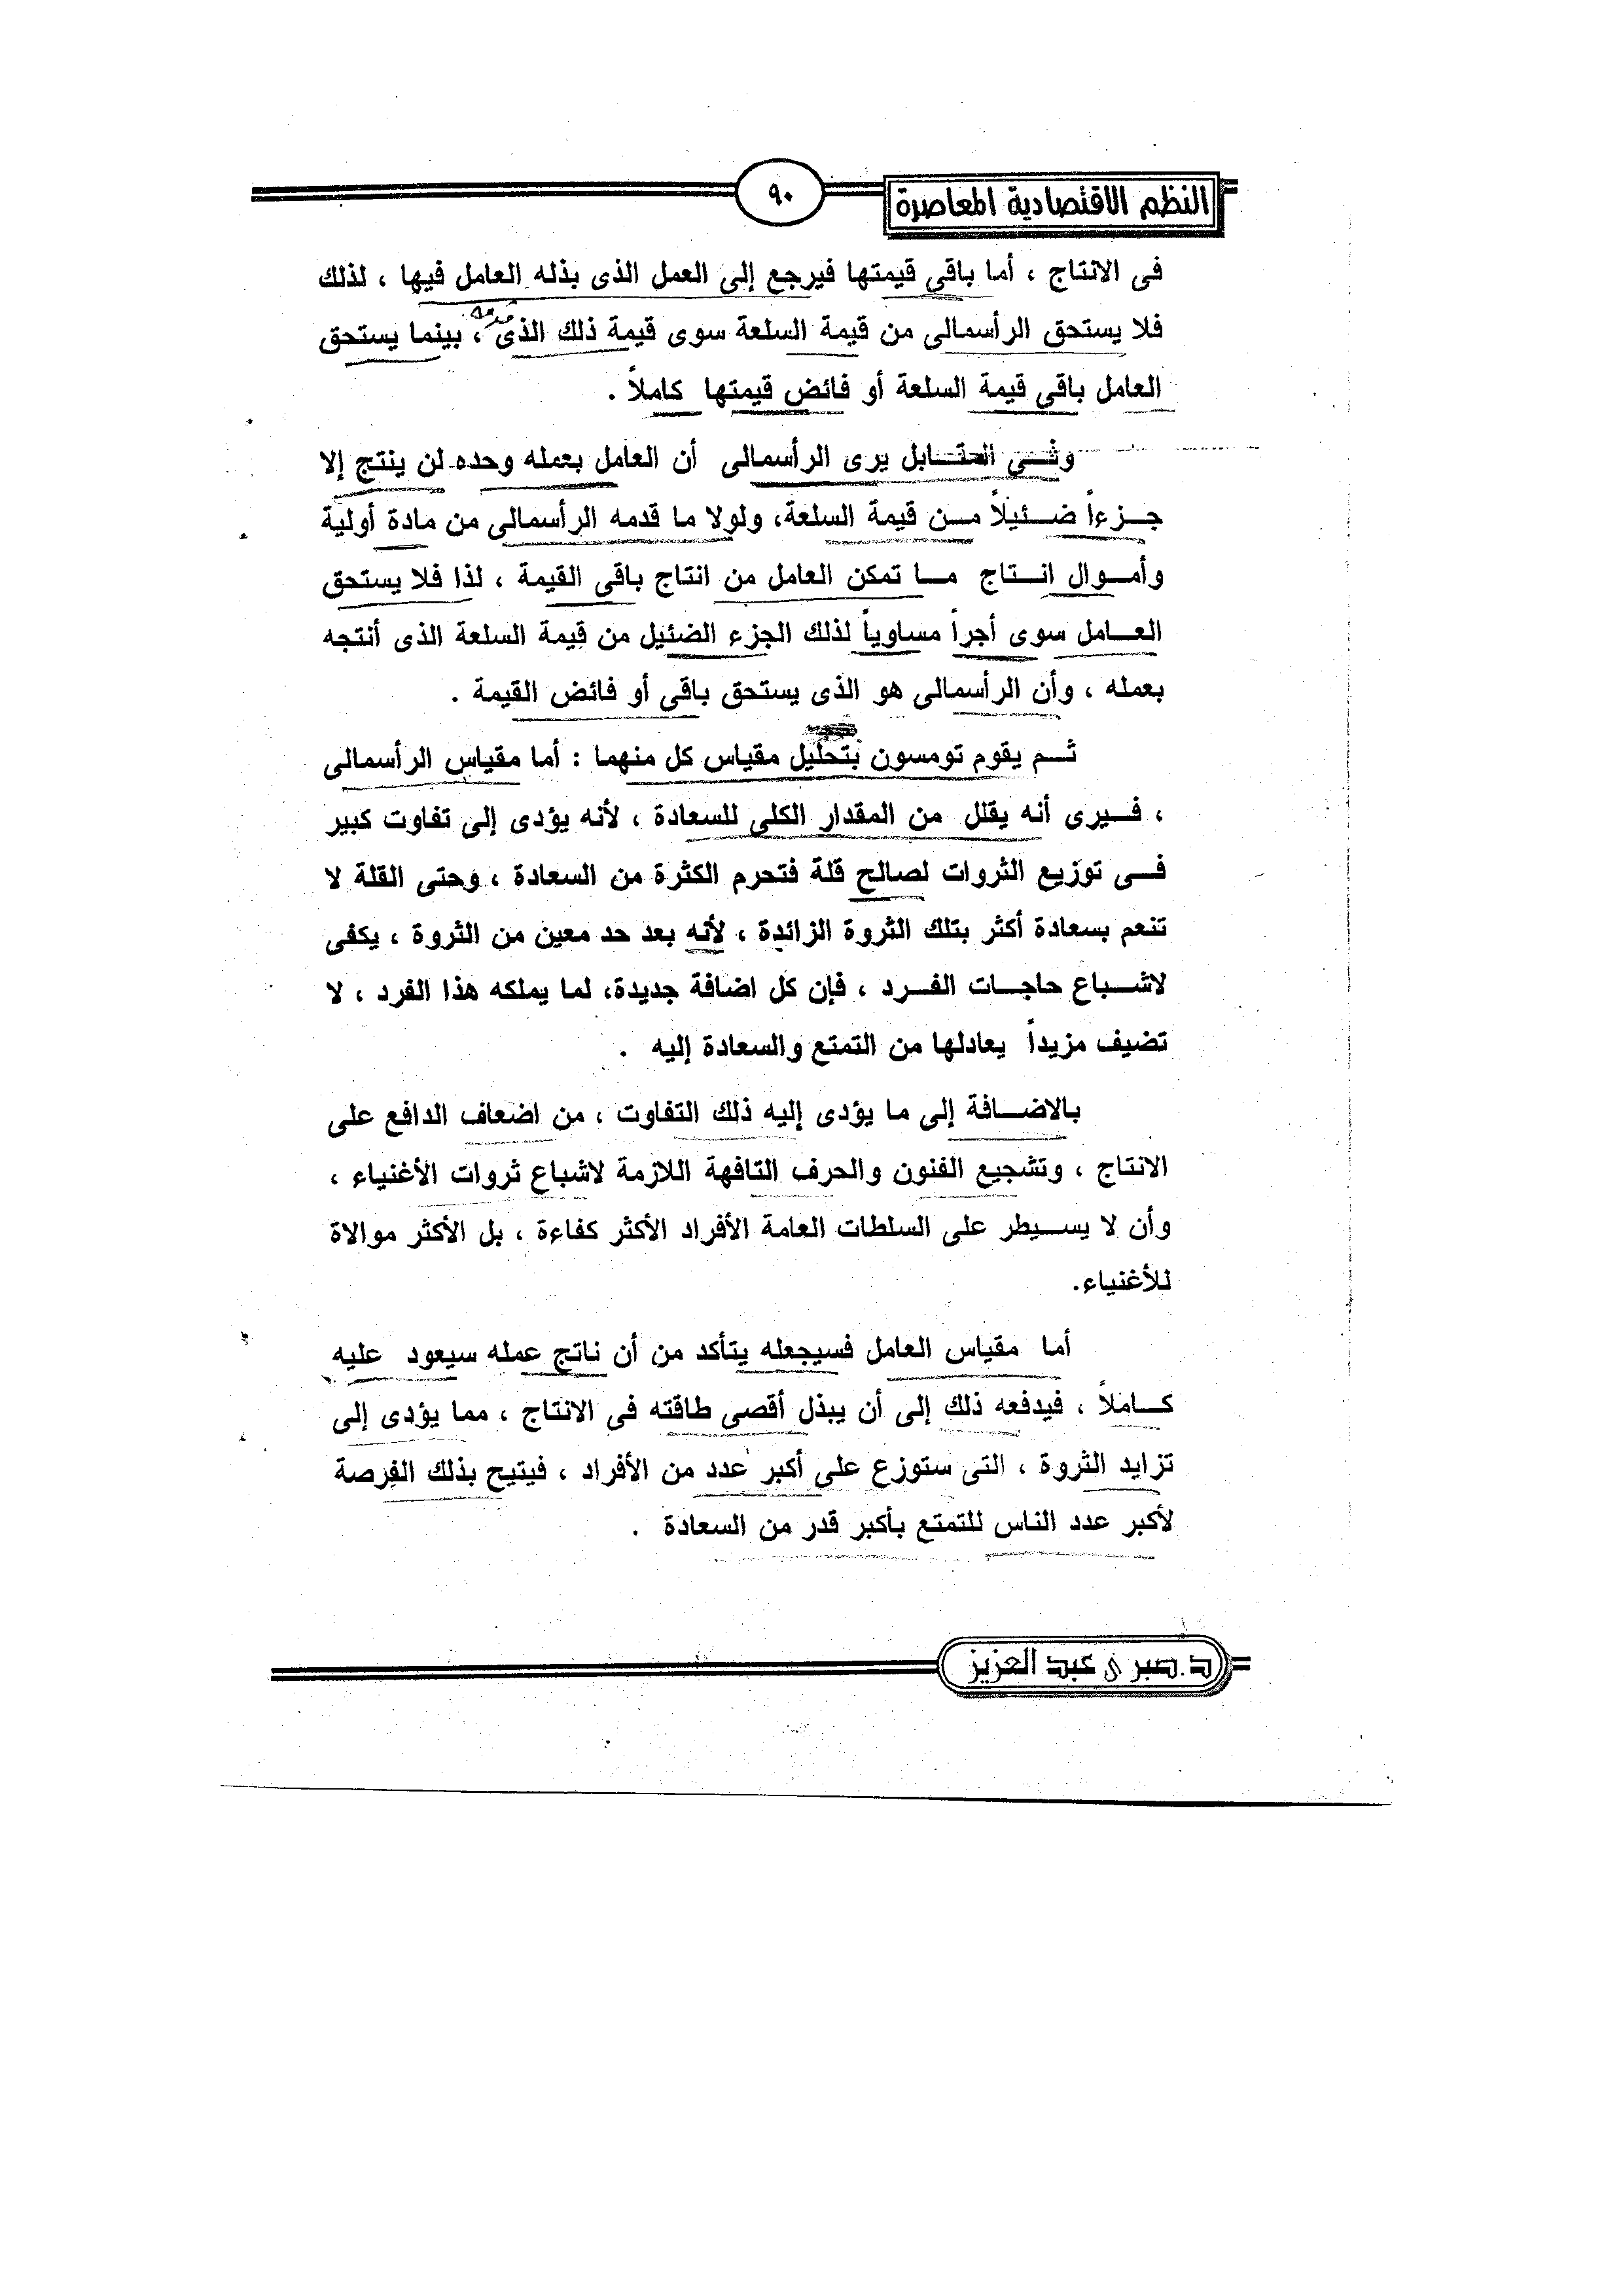 النظم الاقتصادية المعاصرة
٩٠
فى الانتاج ، أما باقى قيمتها فيرجع إلى العمل الذى بذله العامل فيها ، لذلك
فلا يستحق الرأسمالى من قيمة السلعة سوى قيمة ذلك الذى ، بينما يستحق
العامل باقى قيمة السلعة أو فائض قيمتها كاملاً .
وفى المقابل يرى الرأسمالى أن العامل بعمله وحده لن ينتج إلا
جزءاً ضئيلاً من قيمة السلعة، ولولا ما قدمه الرأسمالى من مادة أولية
وأموال انتاج ما تمكن العامل من انتاج باقى القيمة ، لذا فلا يستحق
العامل سوى أجراً مساوياً لذلك الجزء الضئيل من قيمة السلعة الذى أنتجه
بعمله ، وأن الرأسمالى هو الذى يستحق باقى أو فائض القيمة .
ثم يقوم تومسون بتحليل مقياس كل منهما : أما مقياس الرأسمالى
، فيرى أنه يقلل من المقدار الكلى للسعادة ، لأنه يؤدى إلى تفاوت كبير
فى توزيع الثروات لصالح قلة فتحرم الكثرة من السعادة ، وحتى القلة لا
تنعم بسعادة أكثر بتلك الثروة الزائدة ، لأنه بعد حد معين من الثروة ، يكفى
لاشباع حاجات الفرد ، فإن كل اضافة جديدة، لما يملكه هذا الفرد ، لا
تضيف مزيداً يعادلها من التمتع والسعادة إليه .
بالاضافة إلى ما يؤدى إليه ذلك التفاوت ، من اضعاف الدافع على
الانتاج ، وتشجيع الفنون والحرف التافهة اللازمة لاشباع ثروات الأغنياء ،
وأن لا يسيطر على السلطات العامة الأفراد الأكثر كفاءة ، بل الأكثر موالاة
للأغنياء.
أما مقياس العامل فسيجعله يتأكد من أن ناتج عمله سيعود عليه
كاملاً ، فيدفعه ذلك إلى أن يبذل أقصى طاقته فى الانتاج ، مما يؤدى إلى
تزايد الثروة ، التى ستوزع على أكبر عدد من الأفراد ، فيتيح بذلك الفرصة
لأكبر عدد الناس للتمتع بأكبر قدر من السعادة .
د.صبرى عبد العزيز